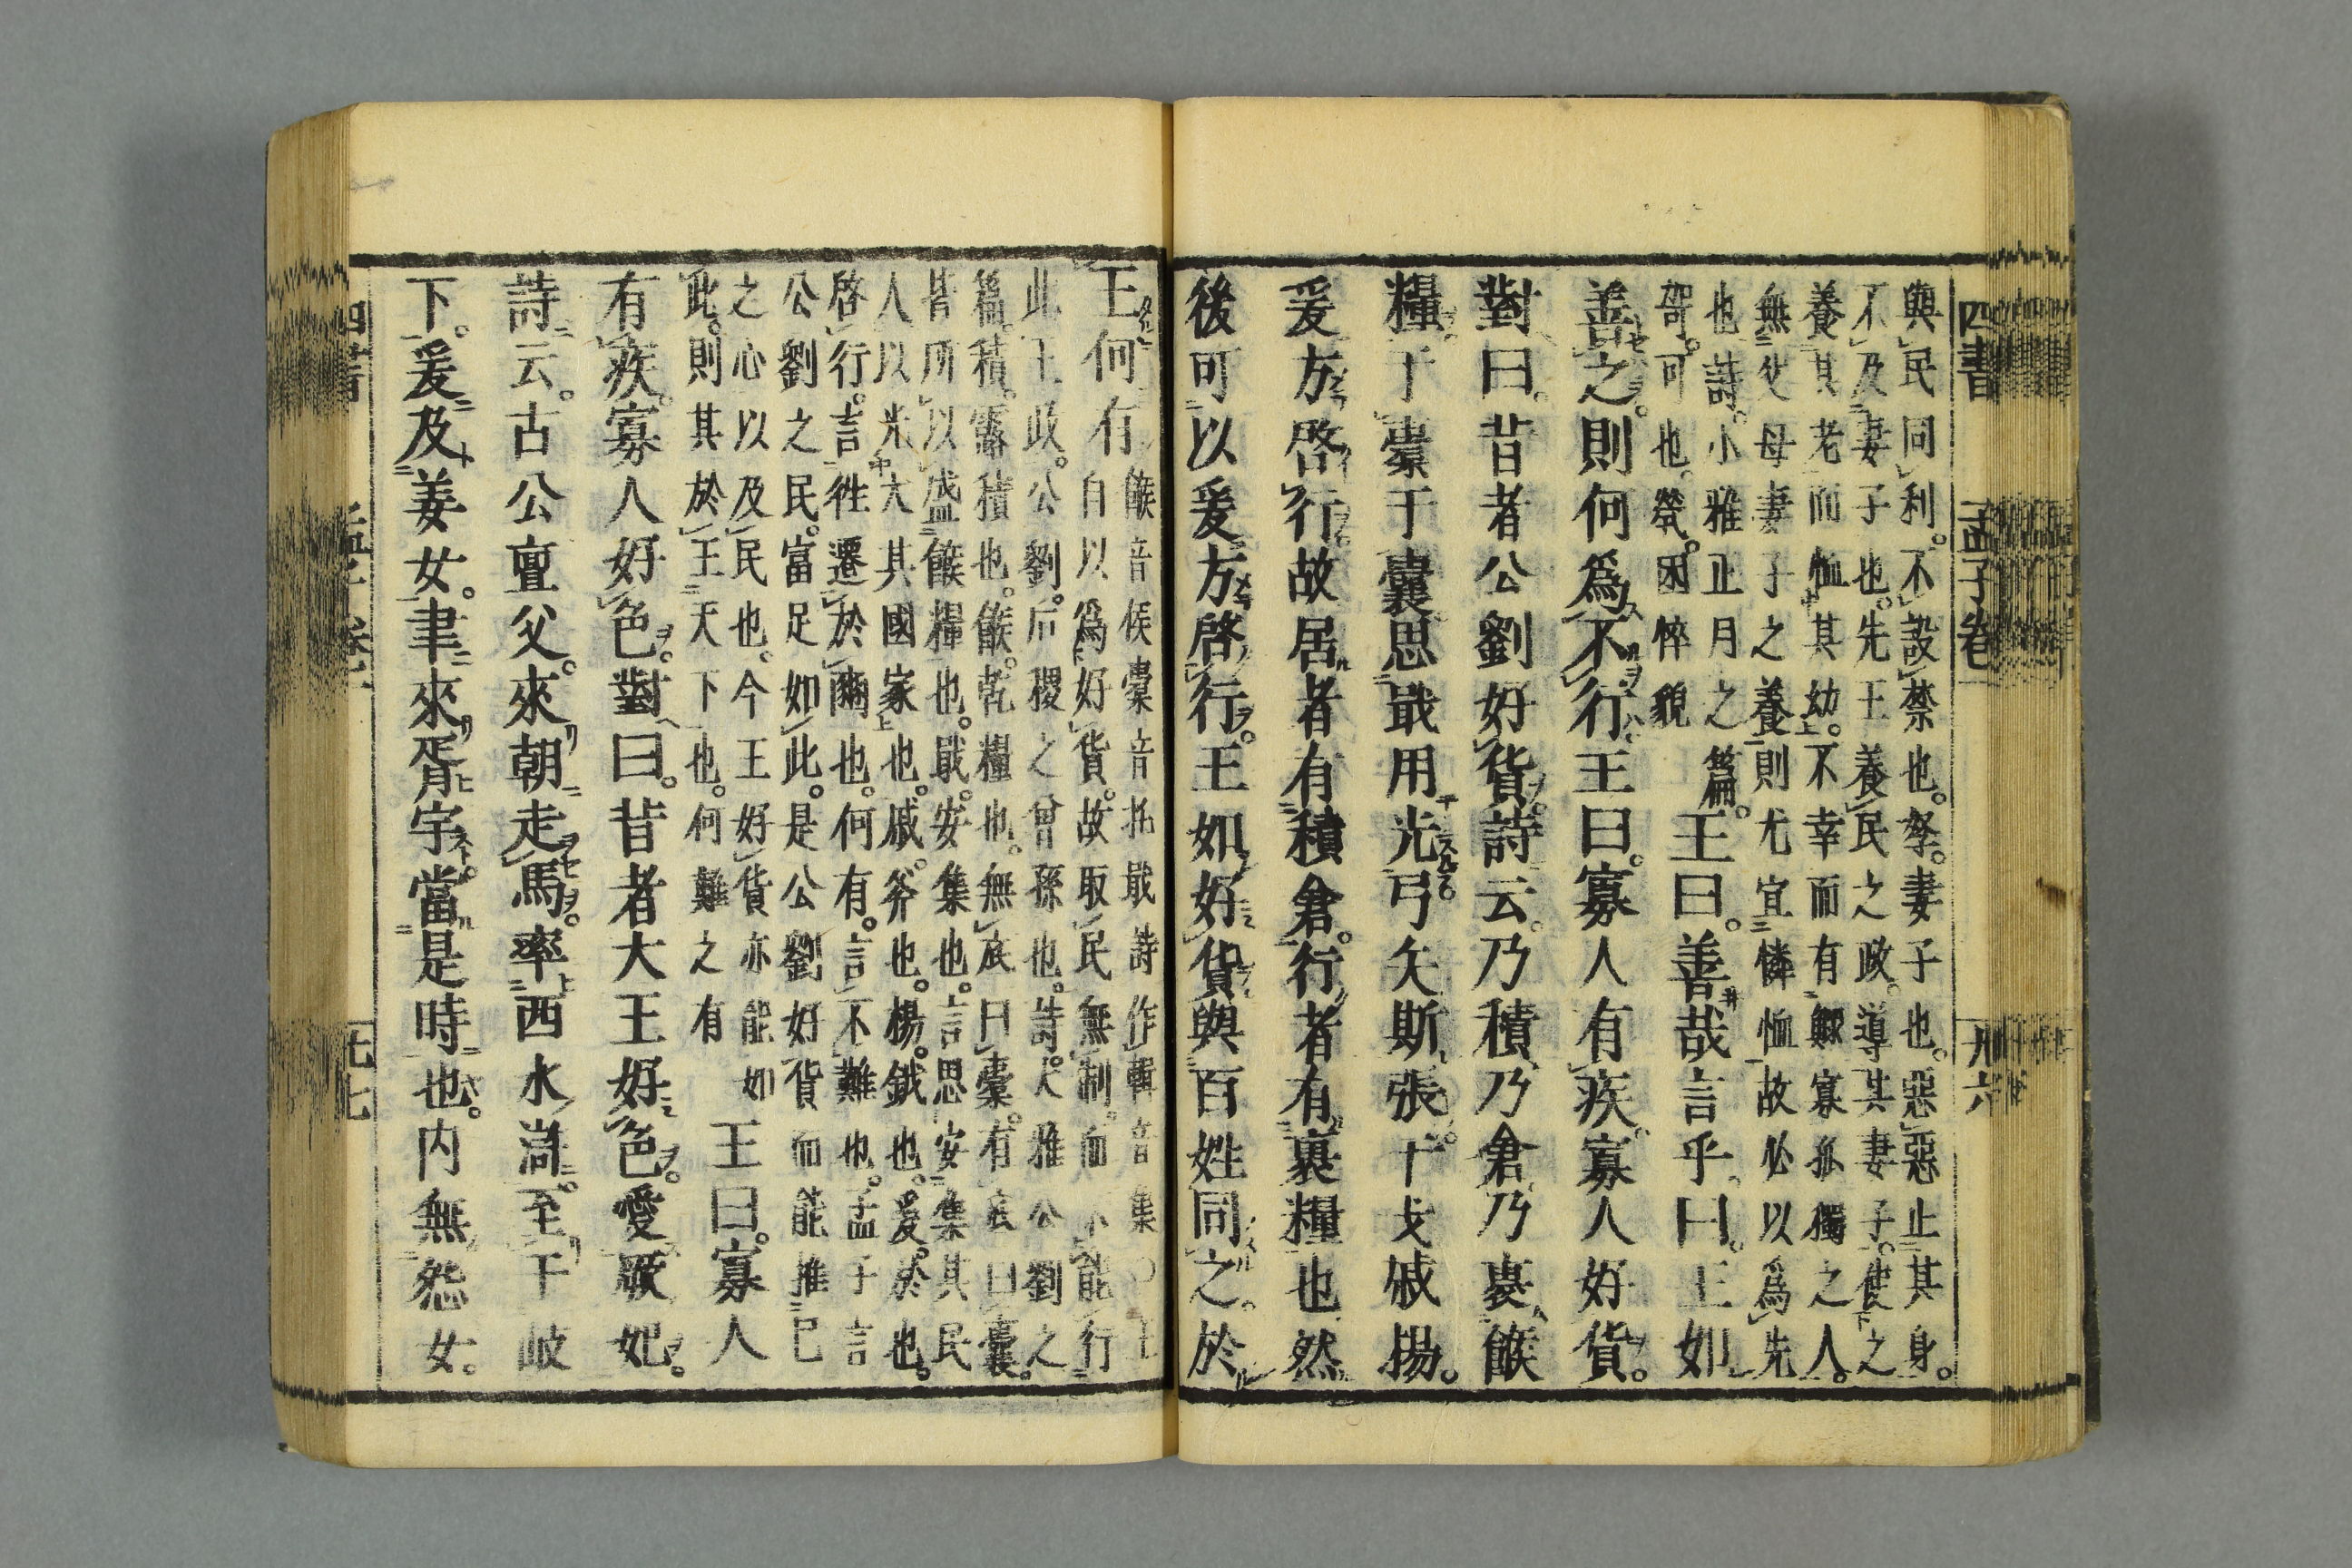 四書 孟子卷一 卅六
與民同利不設禁也孥妻子也惡惡止其身
不及妻子也先王養民之政導其妻子使之
養其老而恤其幼不幸而有鰥寡孤獨之人
無父母妻子之養則尤宜憐恤故必以爲先
也詩小雅正月之篇
哿可也煢困悴貌
王曰善哉言乎曰王如
善之則何爲不行王曰寡人有疾寡人好貨
對曰昔者公劉好貨詩云乃積乃倉乃裹餱
糧于橐于囊思戢用光弓矢斯張干戈戚揚
爰方啓行故居者有積倉行者有裹糧也然
後可以爰方啓行王如好貨與百姓同之於
王何有
餱音侯橐音托戢詩作輯音集○王
自以爲好貨故取民無制而不能行
此王政公劉后稷之曾孫也詩大雅公劉之
篇積露積也餱乾糧也無底曰橐有底曰囊
皆所以盛餱糧也戢安集也言思安集其民
人以光大其國家也戚斧也揚鉞也爰於也
啓行言往遷於豳也何有言不難也孟子言
公劉之民富足如此是公劉好貨而能推己
之心以及民也今王好貨亦能如
此則其於王天下也何難之有
王曰寡人
有疾寡人好色對曰昔者大王好色愛厥妃
詩云古公亶父來朝走馬率西水滸至于岐
下爰及姜女聿來胥宇當是時也內無怨女
四書 孟子卷一 卅七